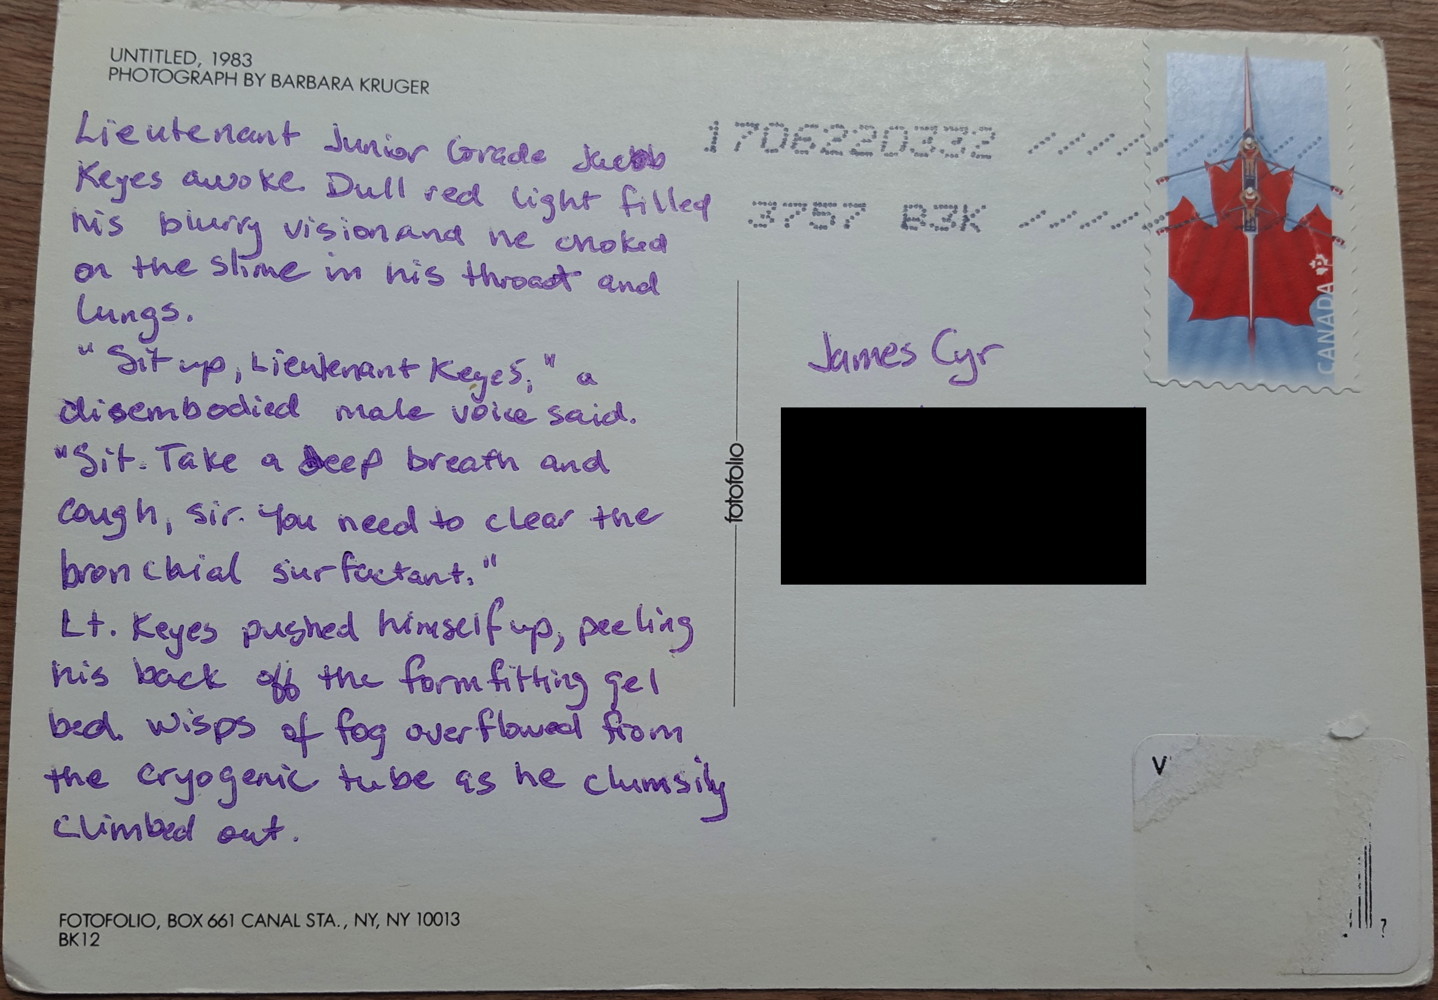 UNTITLED, 1983
PHOTOGRAPH BY BARBARA KRUGER
Lieutenant Junior Grade Jacob
Keyes awoke. Dull red light filled
his blurry vision and he choked
on the slime in his throat and
lungs.
"Sit up, Lieutenant Keyes," a
disembodied male voice said.
"Sit. Take a deep breath and
cough, sir. You need to clear the
bronchial surfactant."
Lt. Keyes pushed himself up, peeling
his back off the formfitting gel
bed. Wisps of fog overflowed from
the cryogenic tube as he clumsily
climbed out.
FOTOFOLIO, BOX 661 CANAL STA., NY, NY 10013
BK12
fotofolio
1706220332
3757 B3K
CANADA
P
James Cyr
V
?